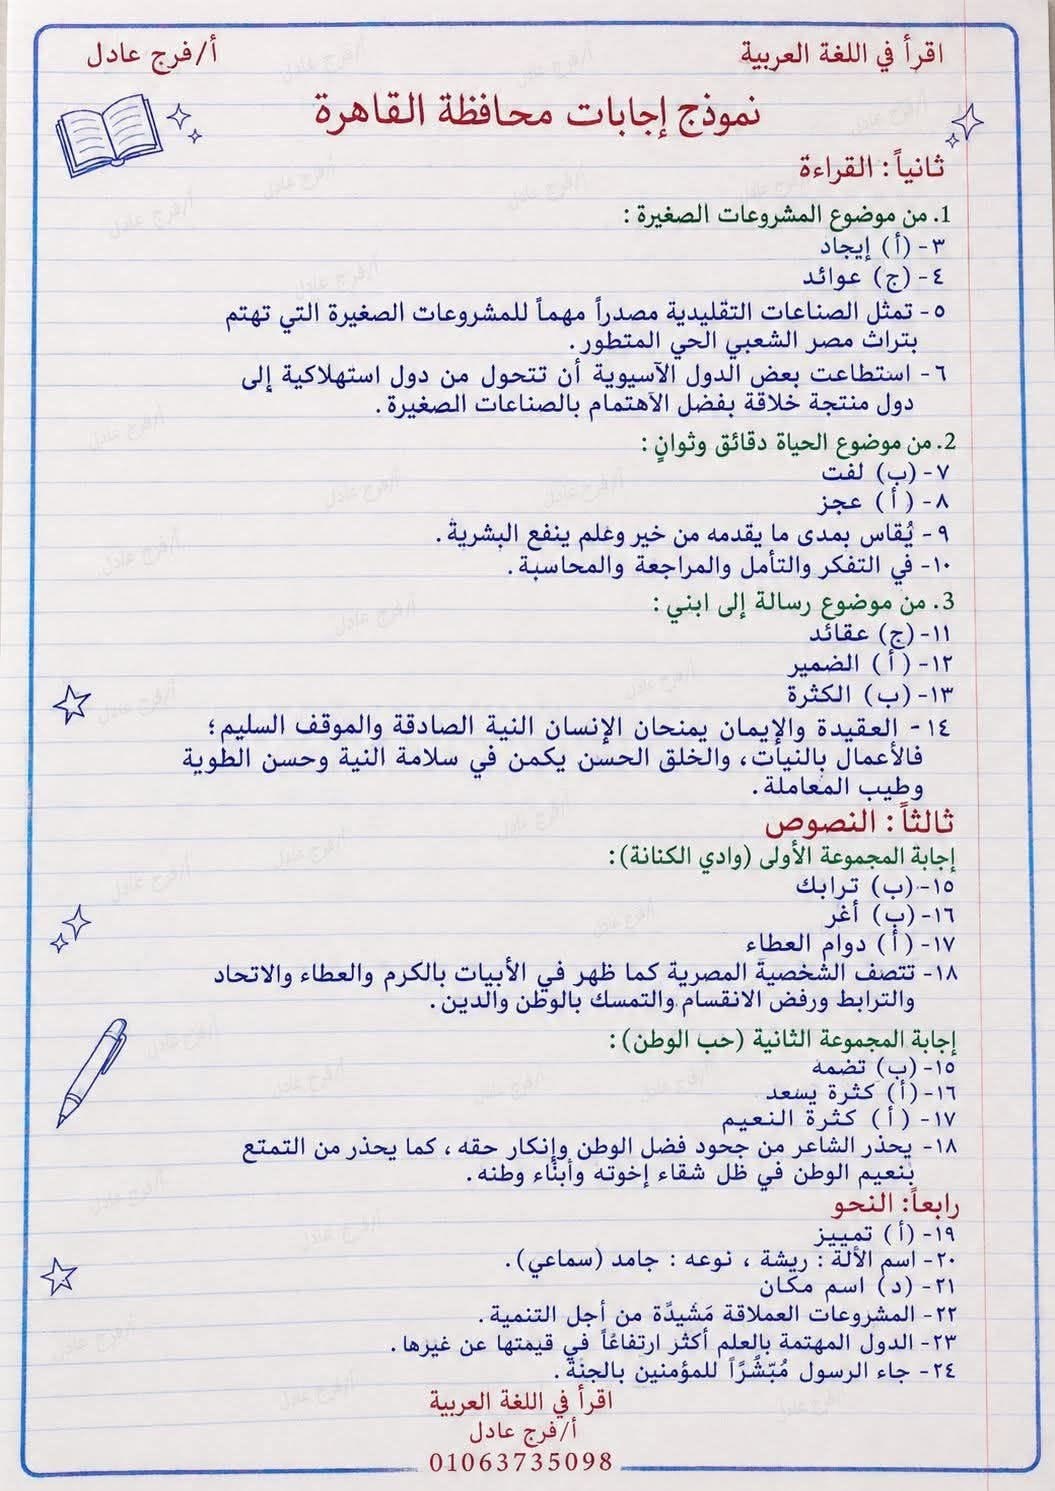 اقرأ في اللغة العربية
أ/فرج عادل
نموذج إجابات محافظة القاهرة
ثانياً: القراءة
1. من موضوع المشروعات الصغيرة:
٣- (أ) إيجاد
٤- (ج) عوائد
٥- تمثل الصناعات التقليدية مصدراً مهماً للمشروعات الصغيرة التي تهتم
بتراث مصر الشعبي الحي المتطور.
٦- استطاعت بعض الدول الآسيوية أن تتحول من دول استهلاكية إلى
دول منتجة خلاقة بفضل الآهتمام بالصناعات الصغيرة.
2. من موضوع الحياة دقائق وثوانٍ:
٧- (ب) لفت
٨- (أ) عجز
٩- يُقاس بمدى ما يقدمه من خير وعلم ينفع البشرية.
١٠- في التفكر والتأمل والمراجعة والمحاسبة.
3. من موضوع رسالة إلى ابني:
١١- (ج) عقائد
١٢- (أ) الضمير
١٣- (ب) الكثرة
١٤- العقيدة والإيمان يمنحان الإنسان النية الصادقة والموقف السليم؛
فالأعمال بالنيات، والخلق الحسن يكمن في سلامة النية وحسن الطوية
وطيب المعاملة.
ثالثاً: النصوص
إجابة المجموعة الأولى (وادي الكنانة):
١٥- (ب) ترابك
١٦- (ب) أغر
١٧- (أ) دوام العطاء
١٨- تتصف الشخصية المصرية كما ظهر في الأبيات بالكرم والعطاء والاتحاد
والترابط ورفض الانقسام والتمسك بالوطن والدين.
إجابة المجموعة الثانية (حب الوطن):
١٥- (ب) تضمه
١٦- (أ) كثرة يسعد
١٧- (أ) كثرة النعيم
١٨- يحذر الشاعر من جحود فضل الوطن وإنكار حقه، كما يحذر من التمتع
بنعيم الوطن في ظل شقاء إخوته وأبناء وطنه.
رابعاً: النحو
١٩- (أ) تمييز
٢٠- اسم الألة: ريشة، نوعه: جامد (سماعي).
٢١- (د) اسم مكان
٢٢- المشروعات العملاقة مَشيدَّة من أجل التنمية.
٢٣- الدول المهتمة بالعلم أكثر ارتفاعًاً في قيمتها عن غيرها.
٢٤- جاء الرسول مُبّشَّرًاً للمؤمنين بالجنة.
اقرأ في اللغة العربية
أ/فرج عادل
01063735098